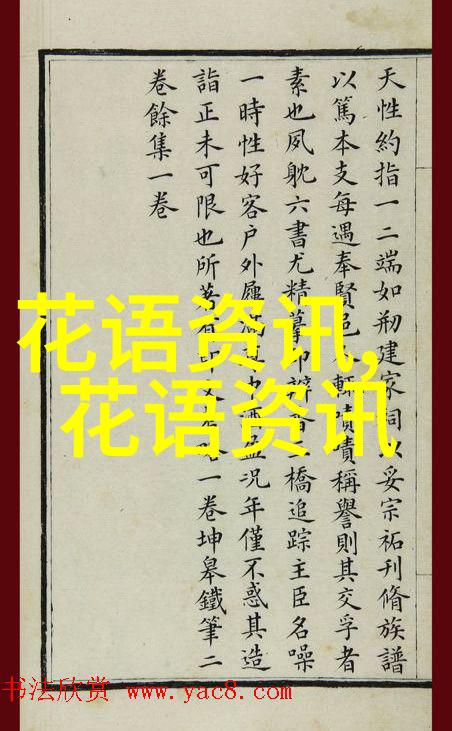 天性約指一二端如剏建家祠以妥宗祏刊脩族譜
以篤本支每遇奉賢邑軒嘖嘖稱譽則其交孚者
素也夙躭六書尤精摹印辨香二橋追踪主臣名噪
一時性好客户外屨滿況年僅不惑其造
詣正未可限也所著有印文一卷坤皋鐵筆二
卷餘集一卷
花语资讯,
花语资讯
书法欣赏 www.yac8.com